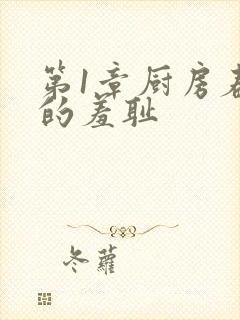 第1章厨房
的羞耻
冬蘿